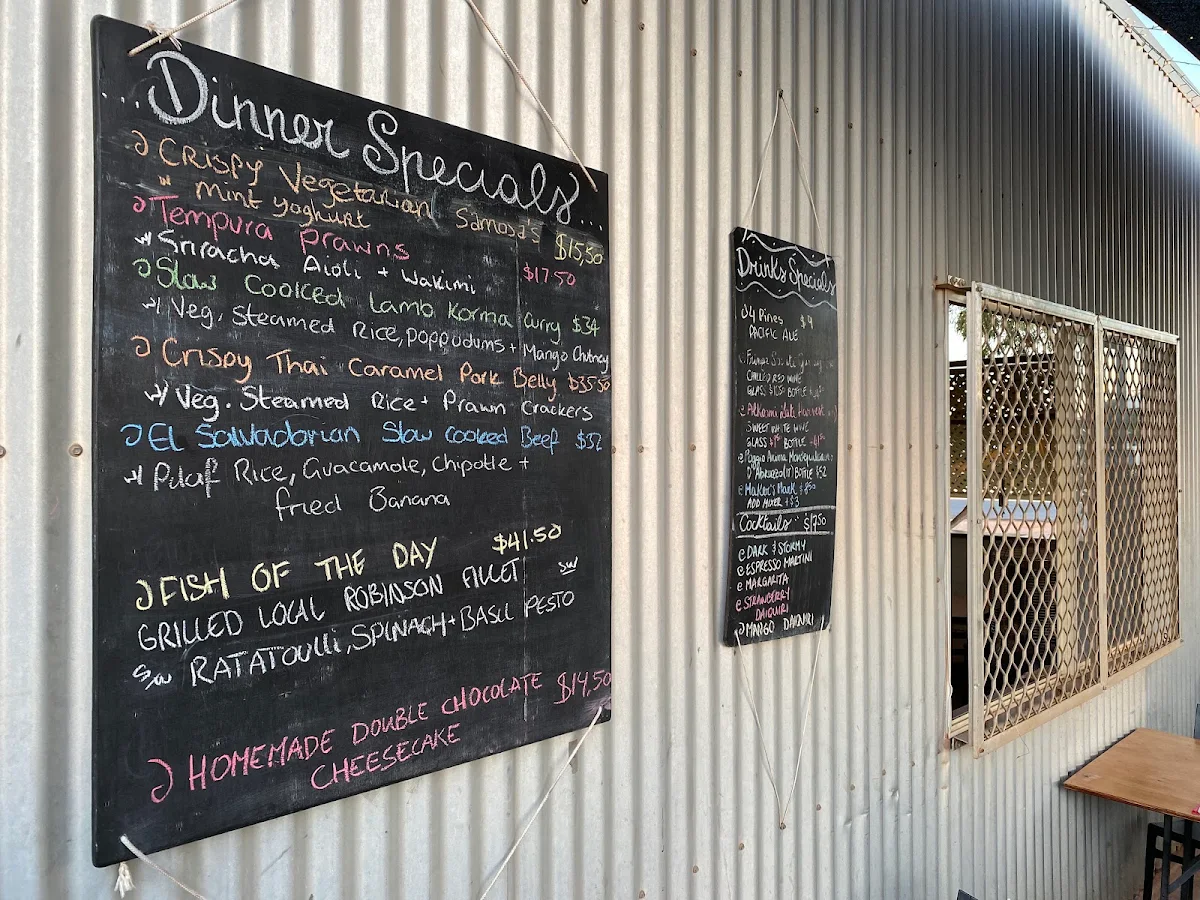 ...Dinner Specials...
Crispy Vegetarian Samosa's $15,50
w mint yoghurt
Tempura Prawns $17.50
w Sriracha Aioli + wakimi
Slow Cooked Lamb Korma Curry $34
w Veg. Steamed Rice, poppodums + Mango Chutney
Crispy Thai Caramel Pork Belly $35.50
w Veg. Steamed Rice + Prawn Crackers
El Salvadorian Slow Cooked Beef $32
w Pilaf Rice, Guacamole, Chipotle +
fried Banana
FISH OF THE DAY $41.50
GRILLED LOCAL ROBINSON FILLET SW
S/W RATATOUlli, SPINACH + BASIL PESTO
HOMEMADE DOUBLE CHOCOLATE $14,50
CHEESECAKE
Drinks Specials
4 Pines $9
PACIFIC ALE
CHILLED RED WINE
GLASS BOTTLE
SWEET WHITE WINE
GLASS BOTTLE
D'Abruzzo BOTTLE $52
Maker's Mark
ADD MIXER + $3
Cocktails $17.50
DARK & STORMY
ESPRESSO MARTINI
MARGARITA
STRAWBERRY
DAIQUIRI
MANGO DAIQUIRI